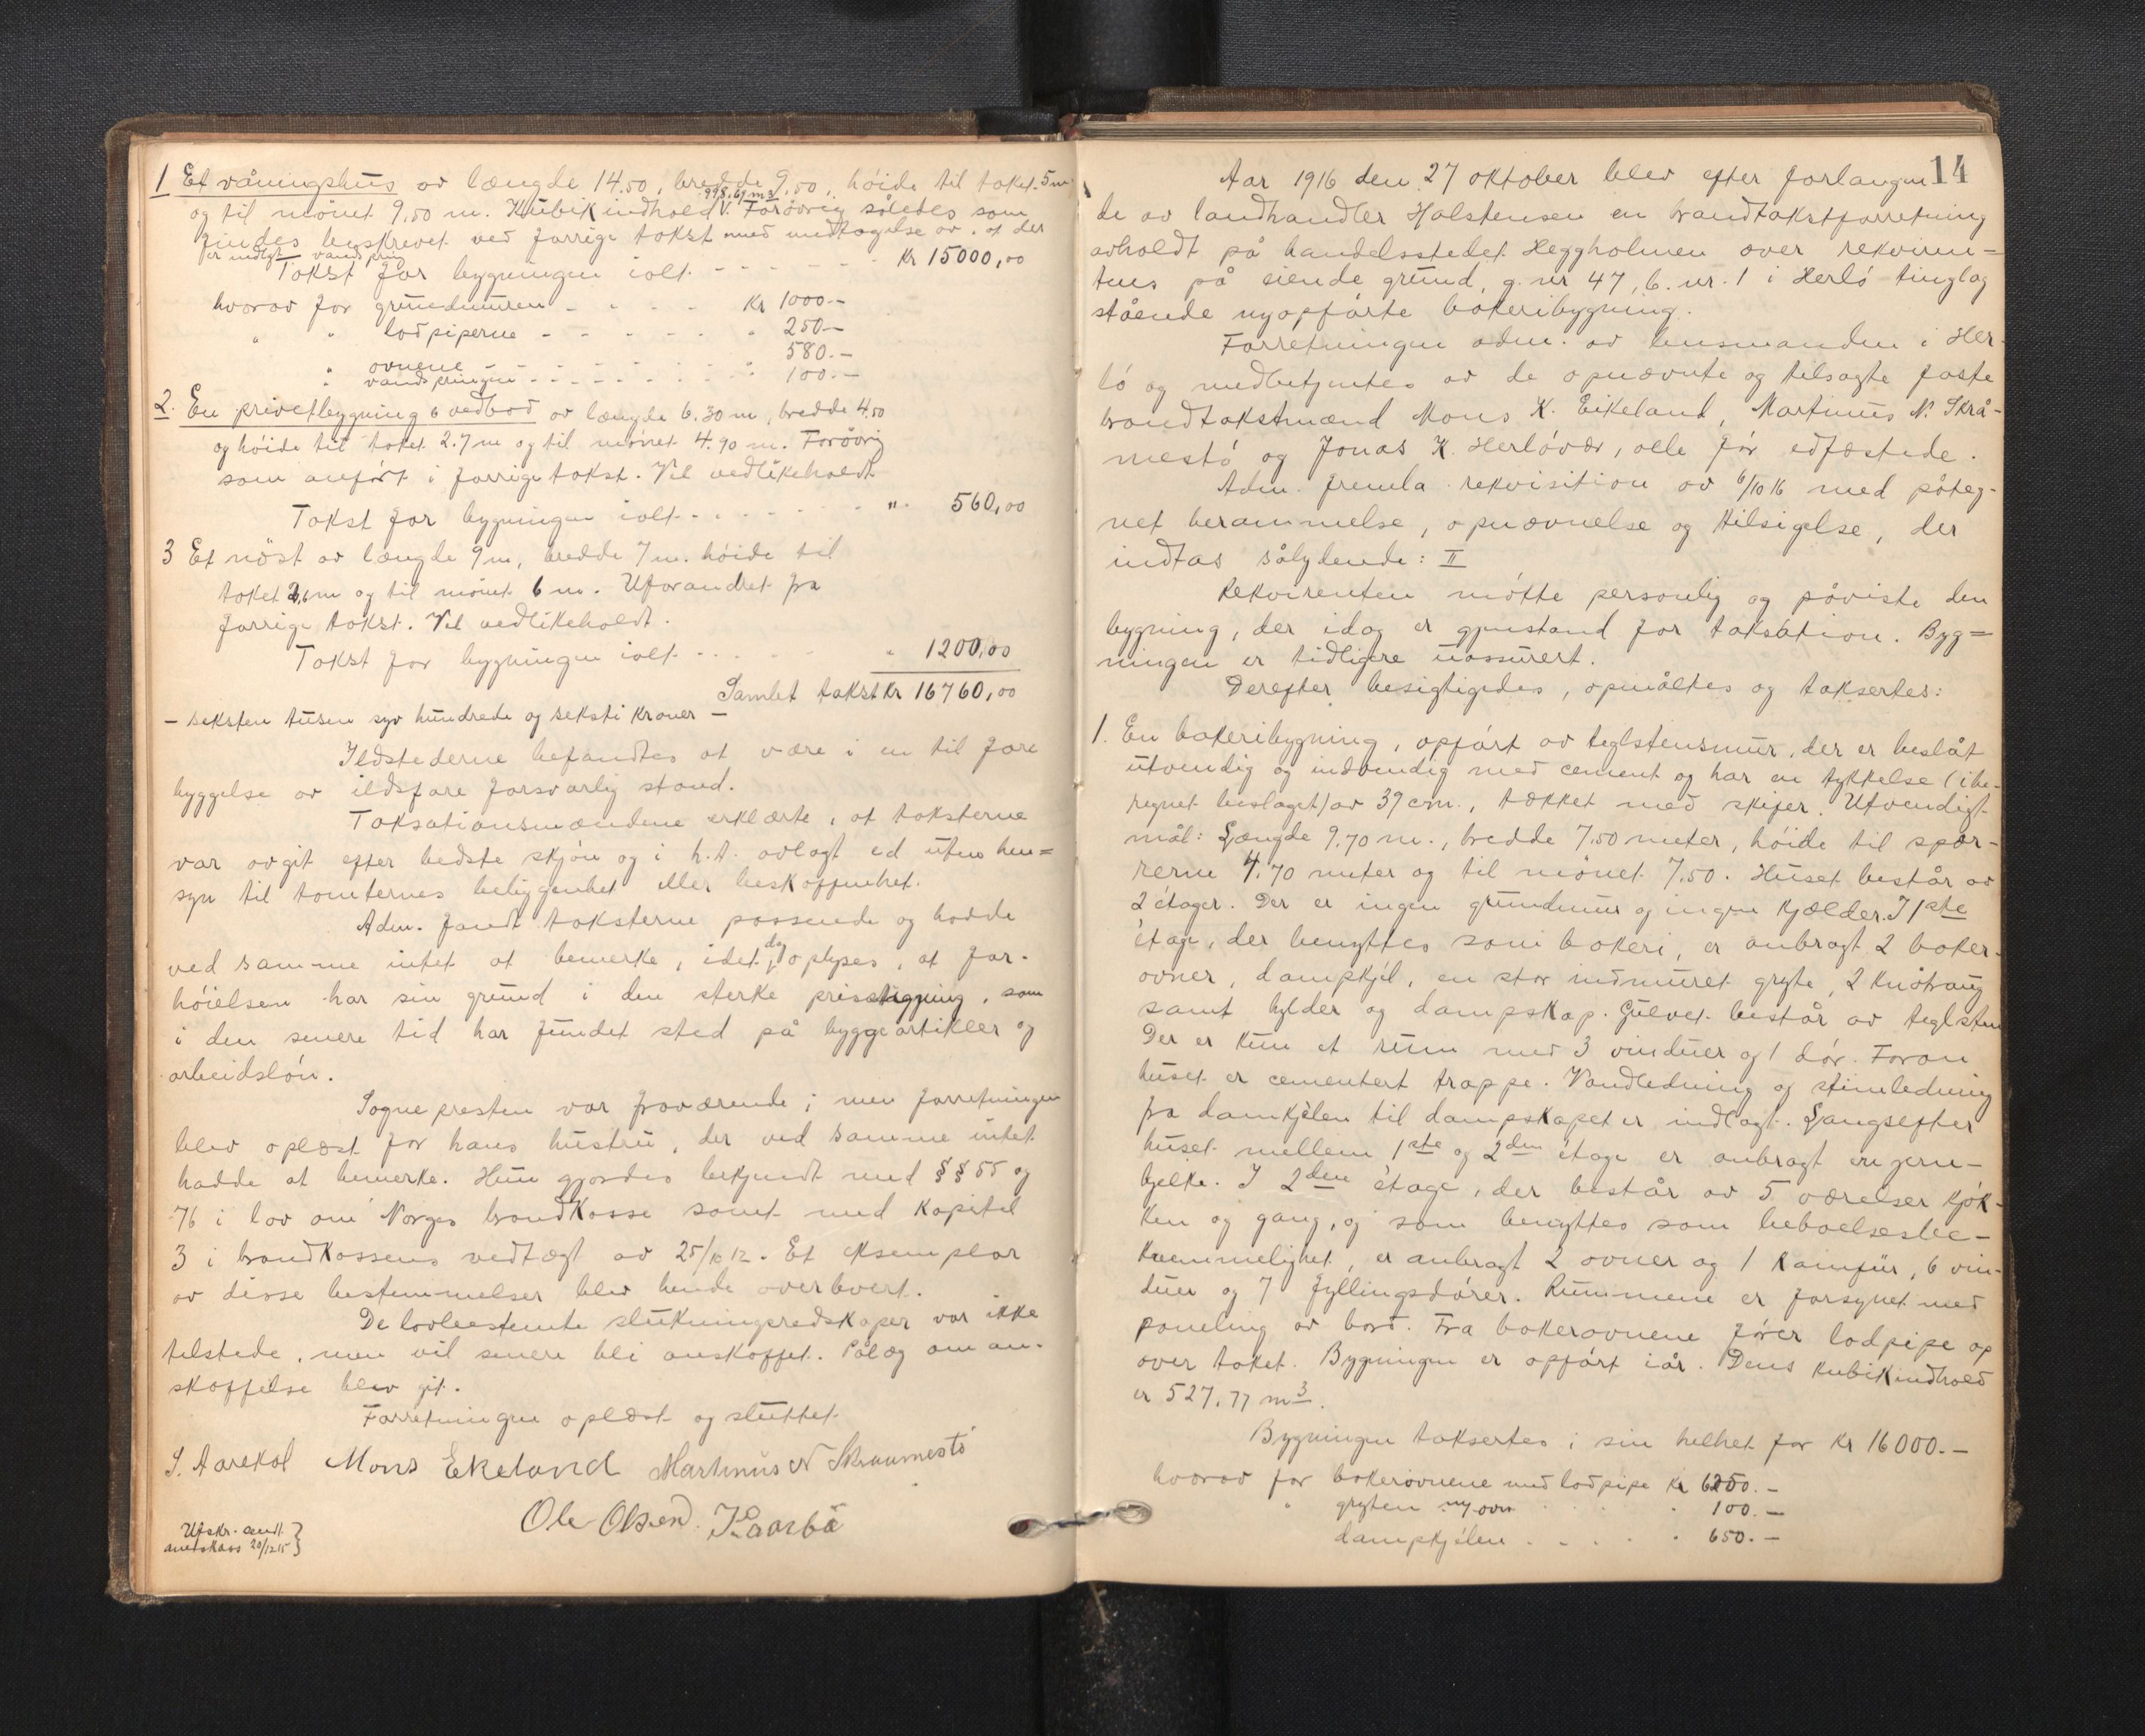 1 Et våningshus av længde 14.50, bredde 9.50, høide til taket 5 m
998.69 m3
og til mønet 9.50 m. Kubikindhold V. Forøvrig således som
findes beskrevet ved forrige takst med undtagelse av, at der
er indlagt vandspring
Takst for bygningen ialt - - - - - kr 15000,00
hvorav for grundmuren - - - - kr 1000.-
" " lodpiperne - - - - - " 250.-
" ovnene - - - - - - " 580.-
" vandspringen - - - - - - " 100.-
2. En privetbygning & vedbod av længde 6.30 m, bredde 4.50
og høide til taket 2.7 m og til mønet 4.90 m. Forøvrig
som anført i forrige takst. Vel vedlikeholdt
Takst for bygningen ialt - - - - - " 560,00
3 Et nøst av længde 9 m, bredde 7 m. høide til
taket 2,6 m og til mønet 6 m. Uforandret fra
forrige takst. Vel vedlikeholdt.
Takst for bygningen ialt - - - - " 1200,00
Samlet takst kr 16760,00
- seksten tusen syv hundrede og seksti kroner -
Ildstederne befandtes at være i en til fore
byggelse av ildsfare forsvarlig stand.
Taksationsmændene erklærte, at taksterne
var avgit efter bedste skjøn og i h.t. avlagt ed uten hen=
syn til tomternes beliggenhet eller beskaffenhet.
Adm. fandt taksterne passende og hadde
ved samme intet at bemerke, idet dog oplyses, at for-
høielsen har sin grund i den sterke prisstigning, som
i den senere tid har fundet sted på byggeartikler og
arbeidsløn.
Sognepresten var fraværende; men forretningen
blev oplæst for hans hustru, der ved samme intet
hadde at bemerke. Hun gjordes bekjendt med §§ 55 og
76 i lov om Norges brandkasse samt med kapitel
3 i brandkassens vedtægt av 25/10 12. Et eksemplar
av disse bestemmelser blev hende overlevert.
De lovbestemte slukningsredskaper var ikke
tilstede, men vil senere bli anskaffet. Pålæg om an-
skaffelse blev git.
Forretningen oplæst og sluttet.
S. Aarekol Mons Ekeland Martinus N Skraumestø
Ole Olsen
Utskr. sendt
20/12 15 }
14
Aar 1916 den 27 oktober blev efter forlangen
de av landhandler Halstensen en brandtakstforretning
avholdt på handelsstedet Heggholmen over rekviren=
tens på eiende grund, g. nr 47, b. nr. 1 i Herlø tinglag
stående nyopførte bakeribygning.
Forretningen adm. av lensmanden i Her-
lø og medbetjentes av de opnævnte og tilsagte faste
brandtakstmænd Mons K. Eikeland, Martinus N. Skrå-
mestø og Jonas K. Herløvær, alle før edfæstede.
Adm. fremla rekvisition av 6/10 16 med påteg-
net berammelse, opnævnelse og tilsigelse, der
indtas sålydende: II
Rekvirenten møtte personlig og påviste den
bygning, der idag er gjenstand for taksation. Byg=
ningen er tidligere uassurert.
Derefter besigtigedes, opmåltes og taksertes:
1. En bakeribygning, opført av teglstensmur, der er beslåt
utvendig og indvendig med cement og har en tykkelse (ibe-
regnet beslaget) av 39 cm., tækket med skifer. Utvendigt
mål: Længde 9.70 m., bredde 7.50 meter, høide til spær-
rerne 4.70 meter og til mønet 7.50. Huset består av
2 étager. Der er ingen grundmur og ingen kjælder. I 1ste
étage, der benyttes som bakeri, er anbragt 2 baker-
ovner, dampkjel, en stor indmuret gryte, 2 knatraug
samt hylder og dampskap. Gulvet består av teglsten
Der er kun et rum med 3 vinduer og 1 dør. Foran
huset er cementert trappe. Vandledning og stimledning
fra damkjelen til dampskapet er indlagt. Langsefter
huset mellem 1ste og 2den étage er anbragt en jern-
bjelke. I 2den étage, der består av 5 værelser kjøk-
ken og gang, og som benyttes som beboelseslee-
kvemmelighet, er anbragt 2 ovner og 1 kamfür, 6 vin-
duer og 7 fyllingsdører. Rummene er forsynet med
paneling av bord. Fra bakerovnene fører lodpipe op
over taket. Bygningen er opført iår. Dens kubikindhold
er 527,77 m3.
Bygningen taksertes i sin helhet for kr 16000.-
hvorav for bakerovnene med lodpipe kr 6250.-
" gryten - - - " 100.-
dampkjelen - - - - " 650.-